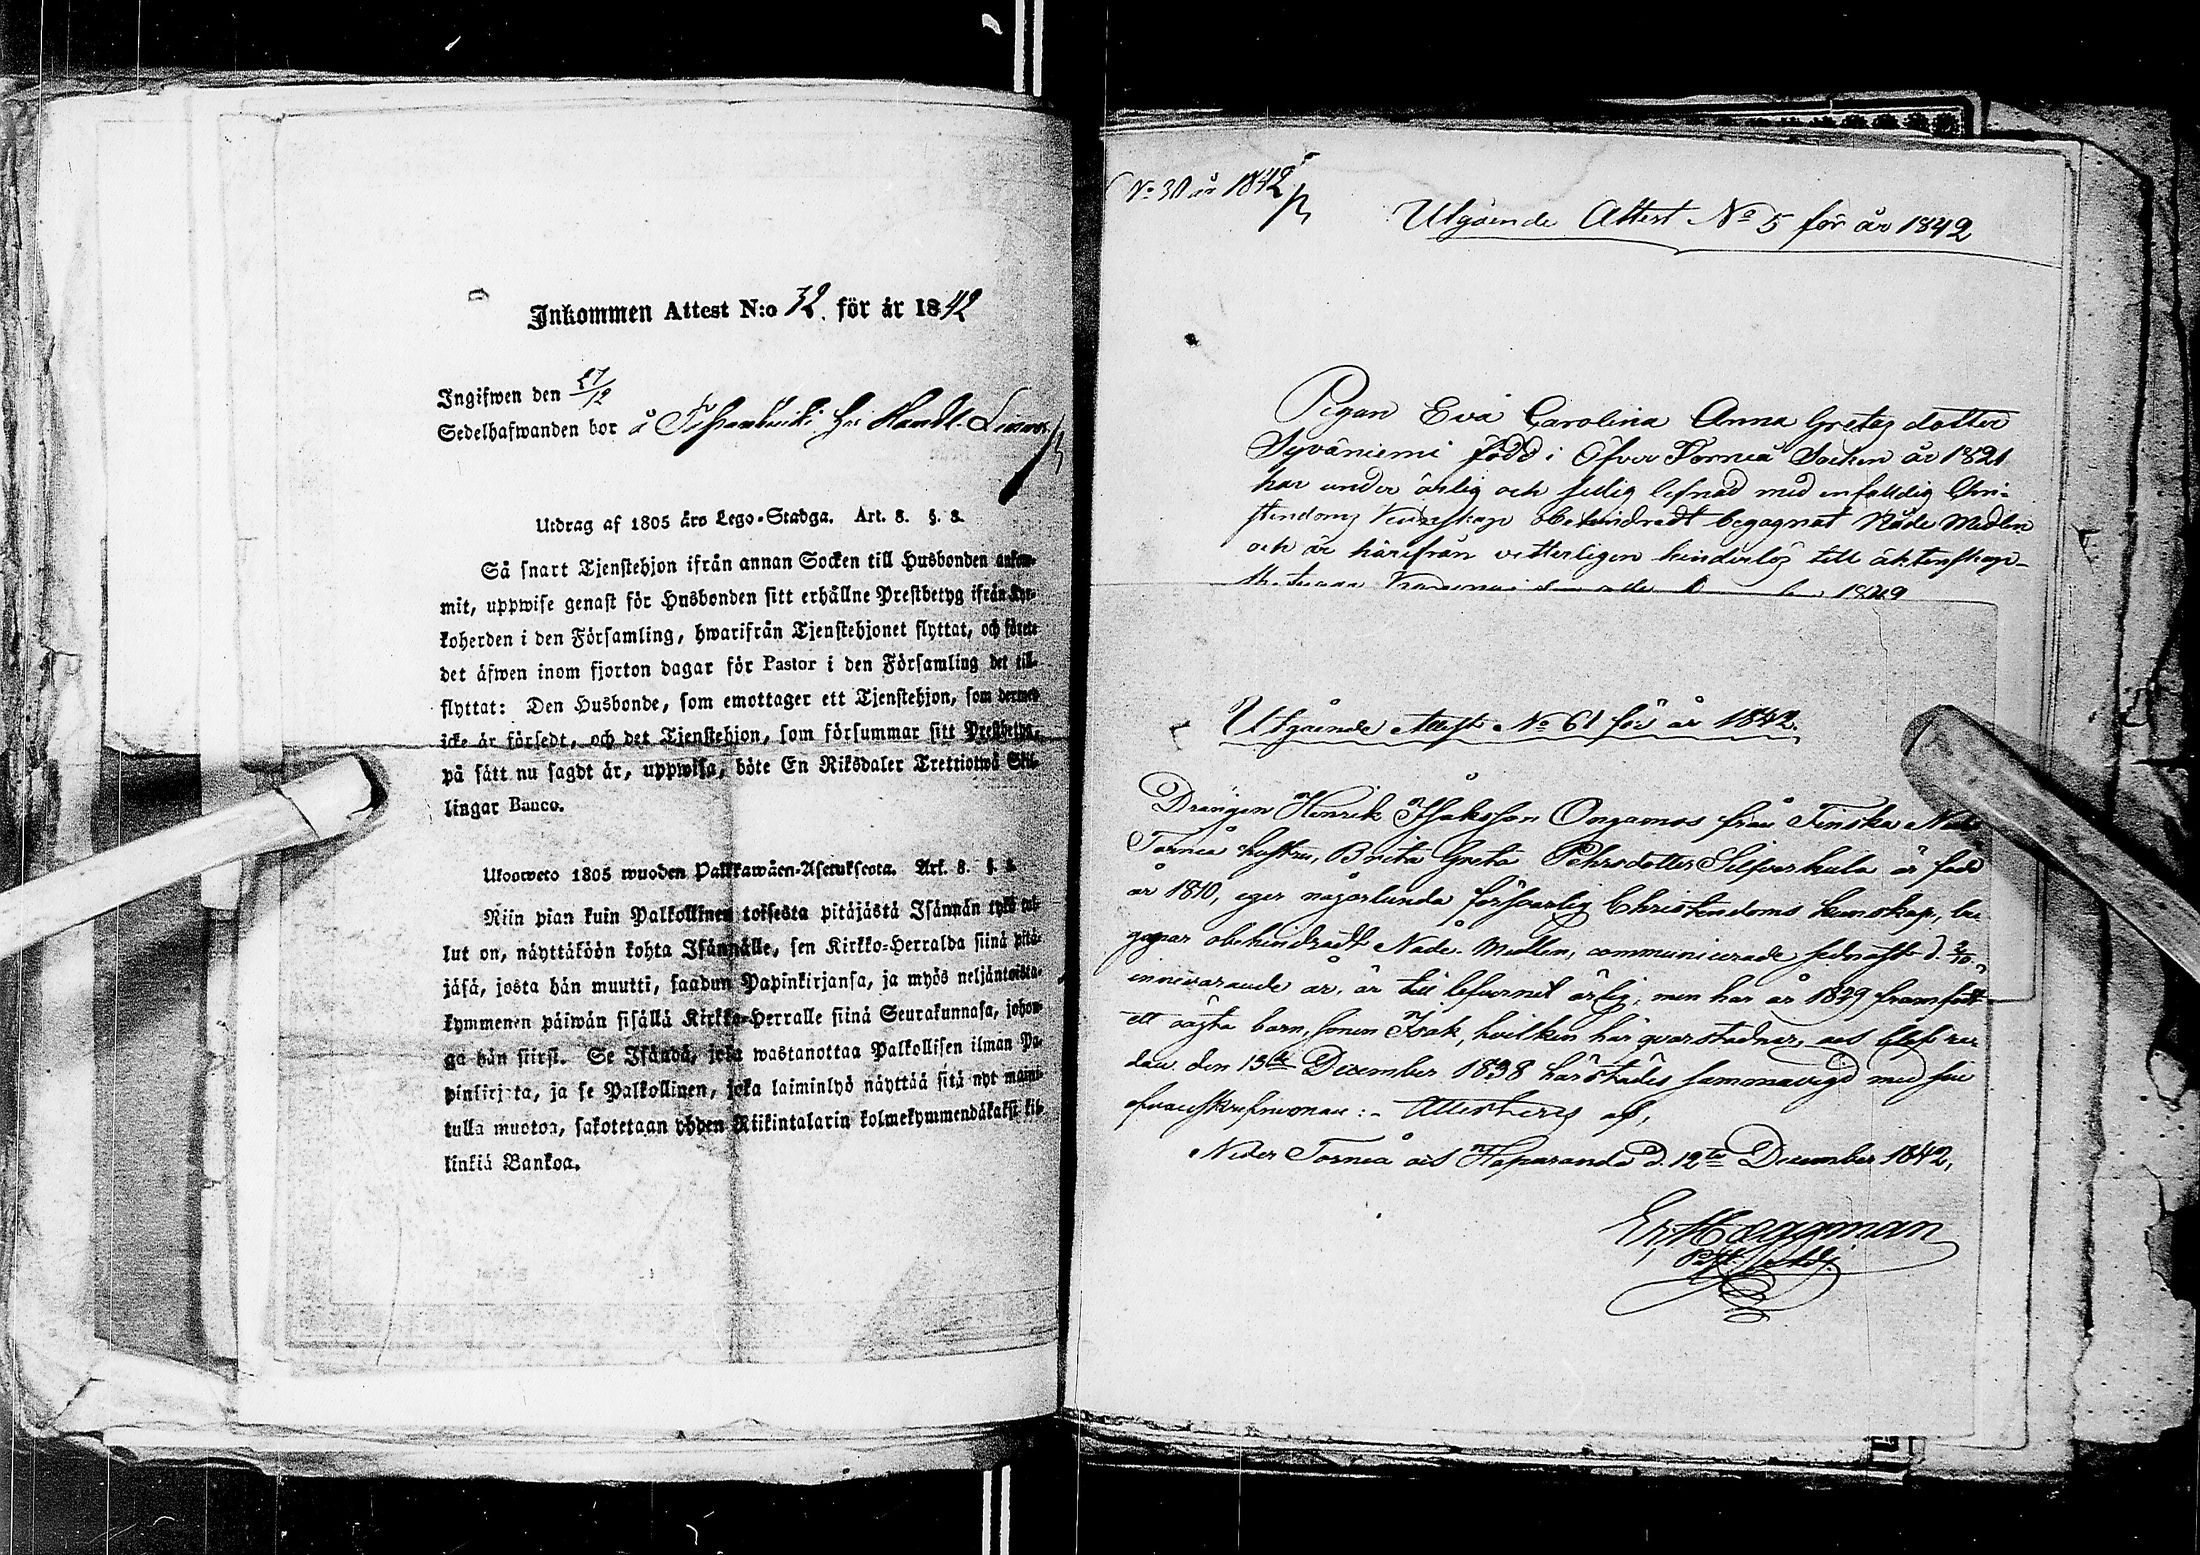 Inkommen Attest N:o 32. för år 1842
Ingifwen den 27/12
Sedelhafwanden bor å hos Handl.
Utdrag af 1805 års Lego-Stadga. Art. 8. §. 8.
Så snart Tjenstehjon ifrån annan Socken till Husbonden ankom-
mit, uppwise genast för Husbonden sitt erhållne Prestbetyg ifrån Kyr-
koherden i den Församling, hwarifrån Tjenstehjonet flyttat, och förete
det äfwen inom fjorton dagar för Pastor i den Församling det till-
flyttat: Den Husbonde, som emottager ett Tjenstehjon, som dermed
icke är försedt, och det Tjenstehjon, som försummar sitt Prestbetyg,
på sätt nu sagdt är, uppwisa, böte En Riksdaler Trettiotwå Skil-
lingar Banco.
Ulosweto 1805 wuoden Palkkawäen-Asetuksesta. Art. 8. §. 8.
Niin pian kuin Palkollinen toisesta pitäjästä Isännän tykö tul-
lut on, näyttäköön kohta Isännälle, sen Kirkko-Herralda siinä pitä-
jäsä, josta hän muutti, saadun Papinkirjansa, ja myös neljäntoista-
kymmenen päiwän sisällä Kirkko-Herralle siinä Seurakunnasa, johon-
ga hän siirsi. Se Isändä, joka wastanottaa Palkollisen ilman Pa-
pinkirjata, ja se Palkollinen, joka laiminlyö näyttää sitä nyt maini-
tulla muotoa, sakotetaan yhden Riikintalarin kolmekymmendäkaksi kil-
linkiä Bankoa.
No 30 år 1842
Utgående Attest No 5 för år 1842
Pigan Eva Carolina Anna Gretas dotter
Syväniemi född i Öfver Torneå Socken år 1821
har under ärlig och sedig lefnad med enfaldig Chri-
stendoms Kunskap obehindradt begagnat Nåde Medlen
och är härifrån vetterligen hinderlös till äktenskap.
Utgående Attest No 61 för år 1842.
Drängen Henrik Isaksson Ongamos från Finska Neder
Torneå hustru, Brita Greta Pehrsdotter Silfverkula är född
år 1810, eger någorlunda försvarlig Christendoms kunskap, be
gagnar obehindradt Nåde Medlen, communicerade sednast d. 2/10
innevarande år, är till lefvernet ärlig, men har år 1829 framfödt
ett oägta barn, sonen Isak, hvilken här qvarstadnar, och blef re-
dan den 13de December 1838 härstädes sammanvigd med sin
ofvanskrefne man: - Attesteras af,
Neder Torneå och Haparanda d. 12te December 1842,
Er. Heggman